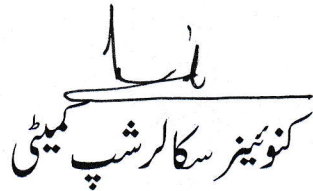 کنوئینر سکالرشپ کمیٹی